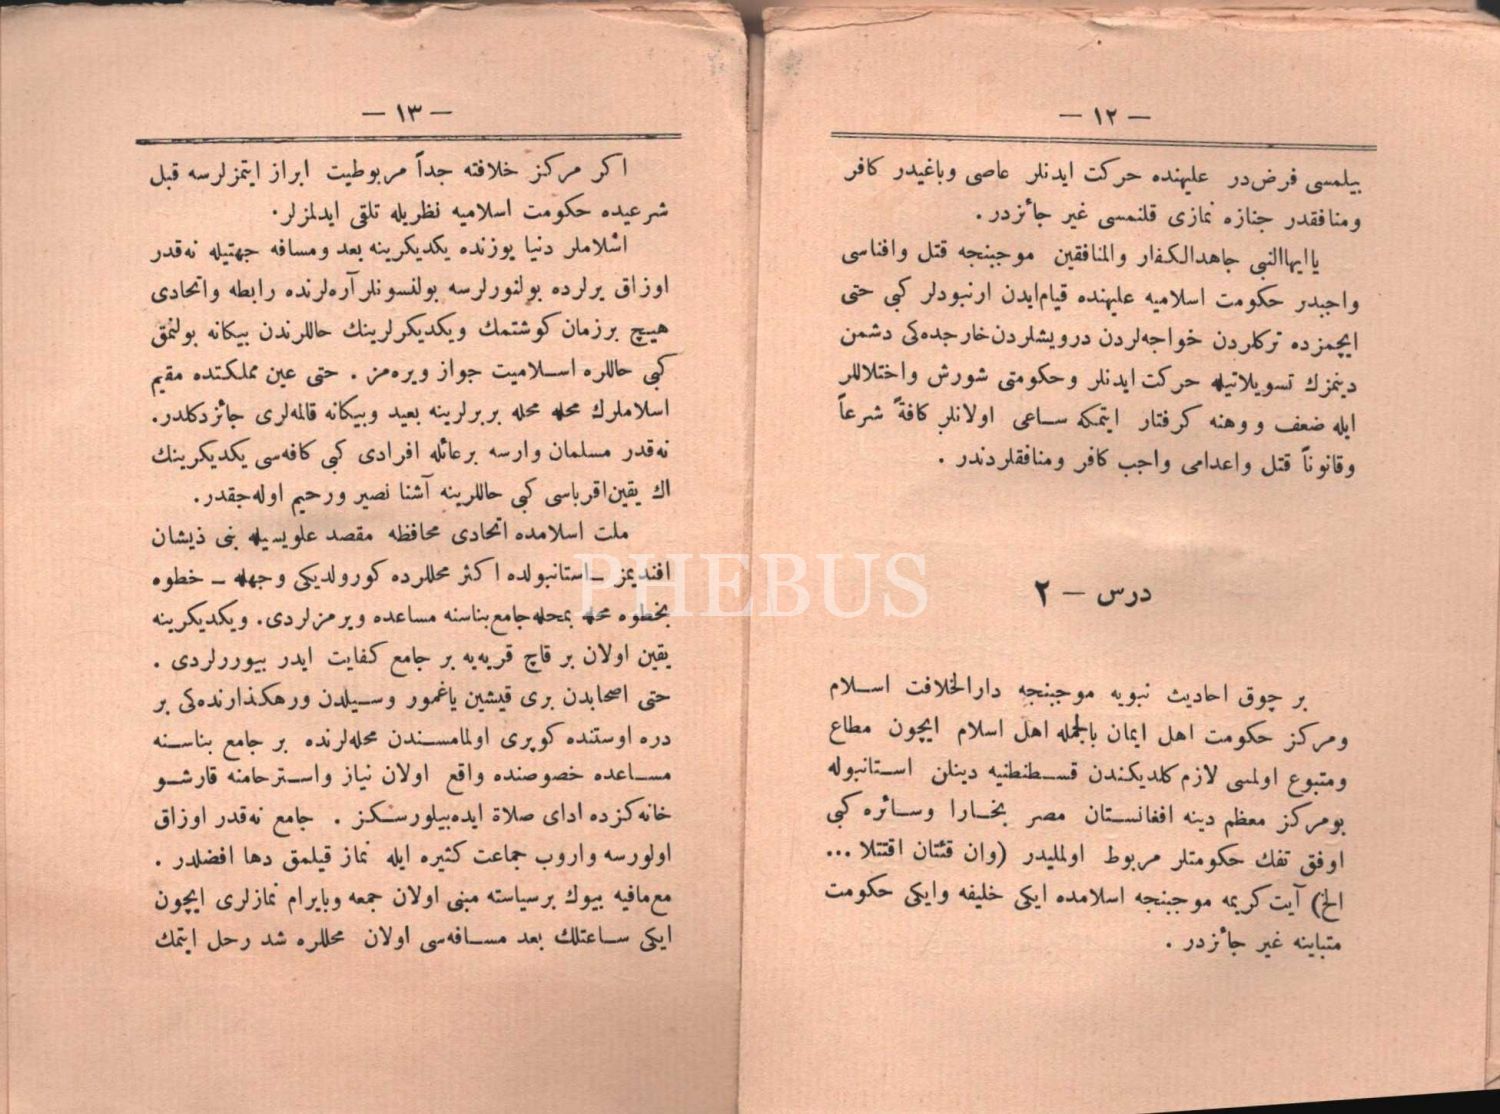 — ١٢ —
بیلمسی فرض‌در علیهنده حرکت ایدنلر عاصی وباغیدر کافر
ومنافقدر جنازه نمازی قلنمسی غیر جائزدر.
یاایهاالنبی جاهدالکفار والمنافقین موجبنجه قتل وافناسی
واجبدر حکومت اسلامیه علیهنده قیام‌ایدن ارنبودلر کبی حتی
ایچمزده ترکلردن خواجه‌لردن درویشلردن‌خارجده‌کی دشمن
دینمزك تسویلاتیله حرکت ایدنلر وحکومتی شورش واختلاللر
ایله ضعف و وهنه کرفتار ایتمکه ساعی اولانلر کافةً شرعاً
وقانوناً قتل واعدامی واجب کافر ومنافقلردندر .
درس — ٢
بر چوق احادیث نبویه موجبنجه دارالخلافت اسلام
ومرکز حکومت اهل ایمان بالجمله اهل اسلام ایچون مطاع
ومتبوع اولمسی لازم کلدیکندن قسطنطنیه دینلن استانبوله
بومرکز معظم دینه افغانستان مصر بخارا وسائره کبی
اوفق تفك حکومتلر مربوط اولملیدر (وان فئتان اقتتلا ...
الخ) آیت کریمه موجبنجه اسلامده ایکی خلیفه وایکی حکومت
متباینه غیر جائزدر .
— ١٣ —
اکر مرکز خلافته جداً مربوطیت ابراز ایتمزلرسه قبل
شرعیده حکومت اسلامیه نظریله تلقی ایدلمزلر.
اسلاملر دنیا یوزنده یکدیکرینه بعد ومسافه جهتیله نه‌قدر
اوزاق یرلرده بولنورلرسه بولنسونلرآره‌لرنده رابطه واتحادی
هیچ برزمان کوشتمك ویکدیکرلرینك حاللرندن بیکانه بولنمق
کبی حاللره اسلامیت جواز ویره‌مز . حتی عین مملکتده مقیم
اسلاملرك محله محله بربرلرینه بعید وبیکانه قالمه‌لری جائزدکلدر.
نه‌قدر مسلمان وارسه برعائله افرادی کبی کافه‌سی یکدیکرینك
اك یقین‌اقرباسی کبی حاللرینه آشنا نصیر ورحیم اوله‌جقدر.
ملت اسلامده اتحادی محافظه مقصد علویسیله نبی ذیشان
افندیمز — استانبولده اکثر محللرده کورولدیکی وجهله — خطوه
بخطوه محله بمحله‌جامع‌بناسنه مساعده ویرمزلردی. ویکدیکرینه
یقین اولان بر قاچ قریه‌یه بر جامع کفایت ایدر بیوررلردی .
حتی اصحابدن بری قیشین یاغمور وسیلدن ورهکذارنده‌کی بر
دره اوستنده کوپری اولمامسندن محله‌لرنده بر جامع بناسنه
مساعده خصوصنده واقع اولان نیاز واسترحامنه قارشو
خانه‌کزده ادای صلاة ایده‌بیلورسکز . جامع نه‌قدر اوزاق
اولورسه واروب جماعت کثیره ایله نماز قیلمق دها افضلدر .
مع‌مافیه بیوك برسیاسته مبنی اولان جمعه وبایرام نمازلری ایچون
ایکی ساعتلك بعد مسافه‌سی اولان محللره شد رحل ایتمك
PHEBUS